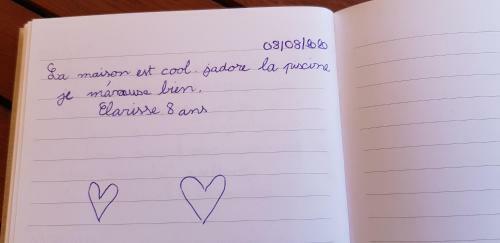 03/08/2020
La maison est cool. j'adore la piscine
je m'arause bien.
Clarisse 8 ans